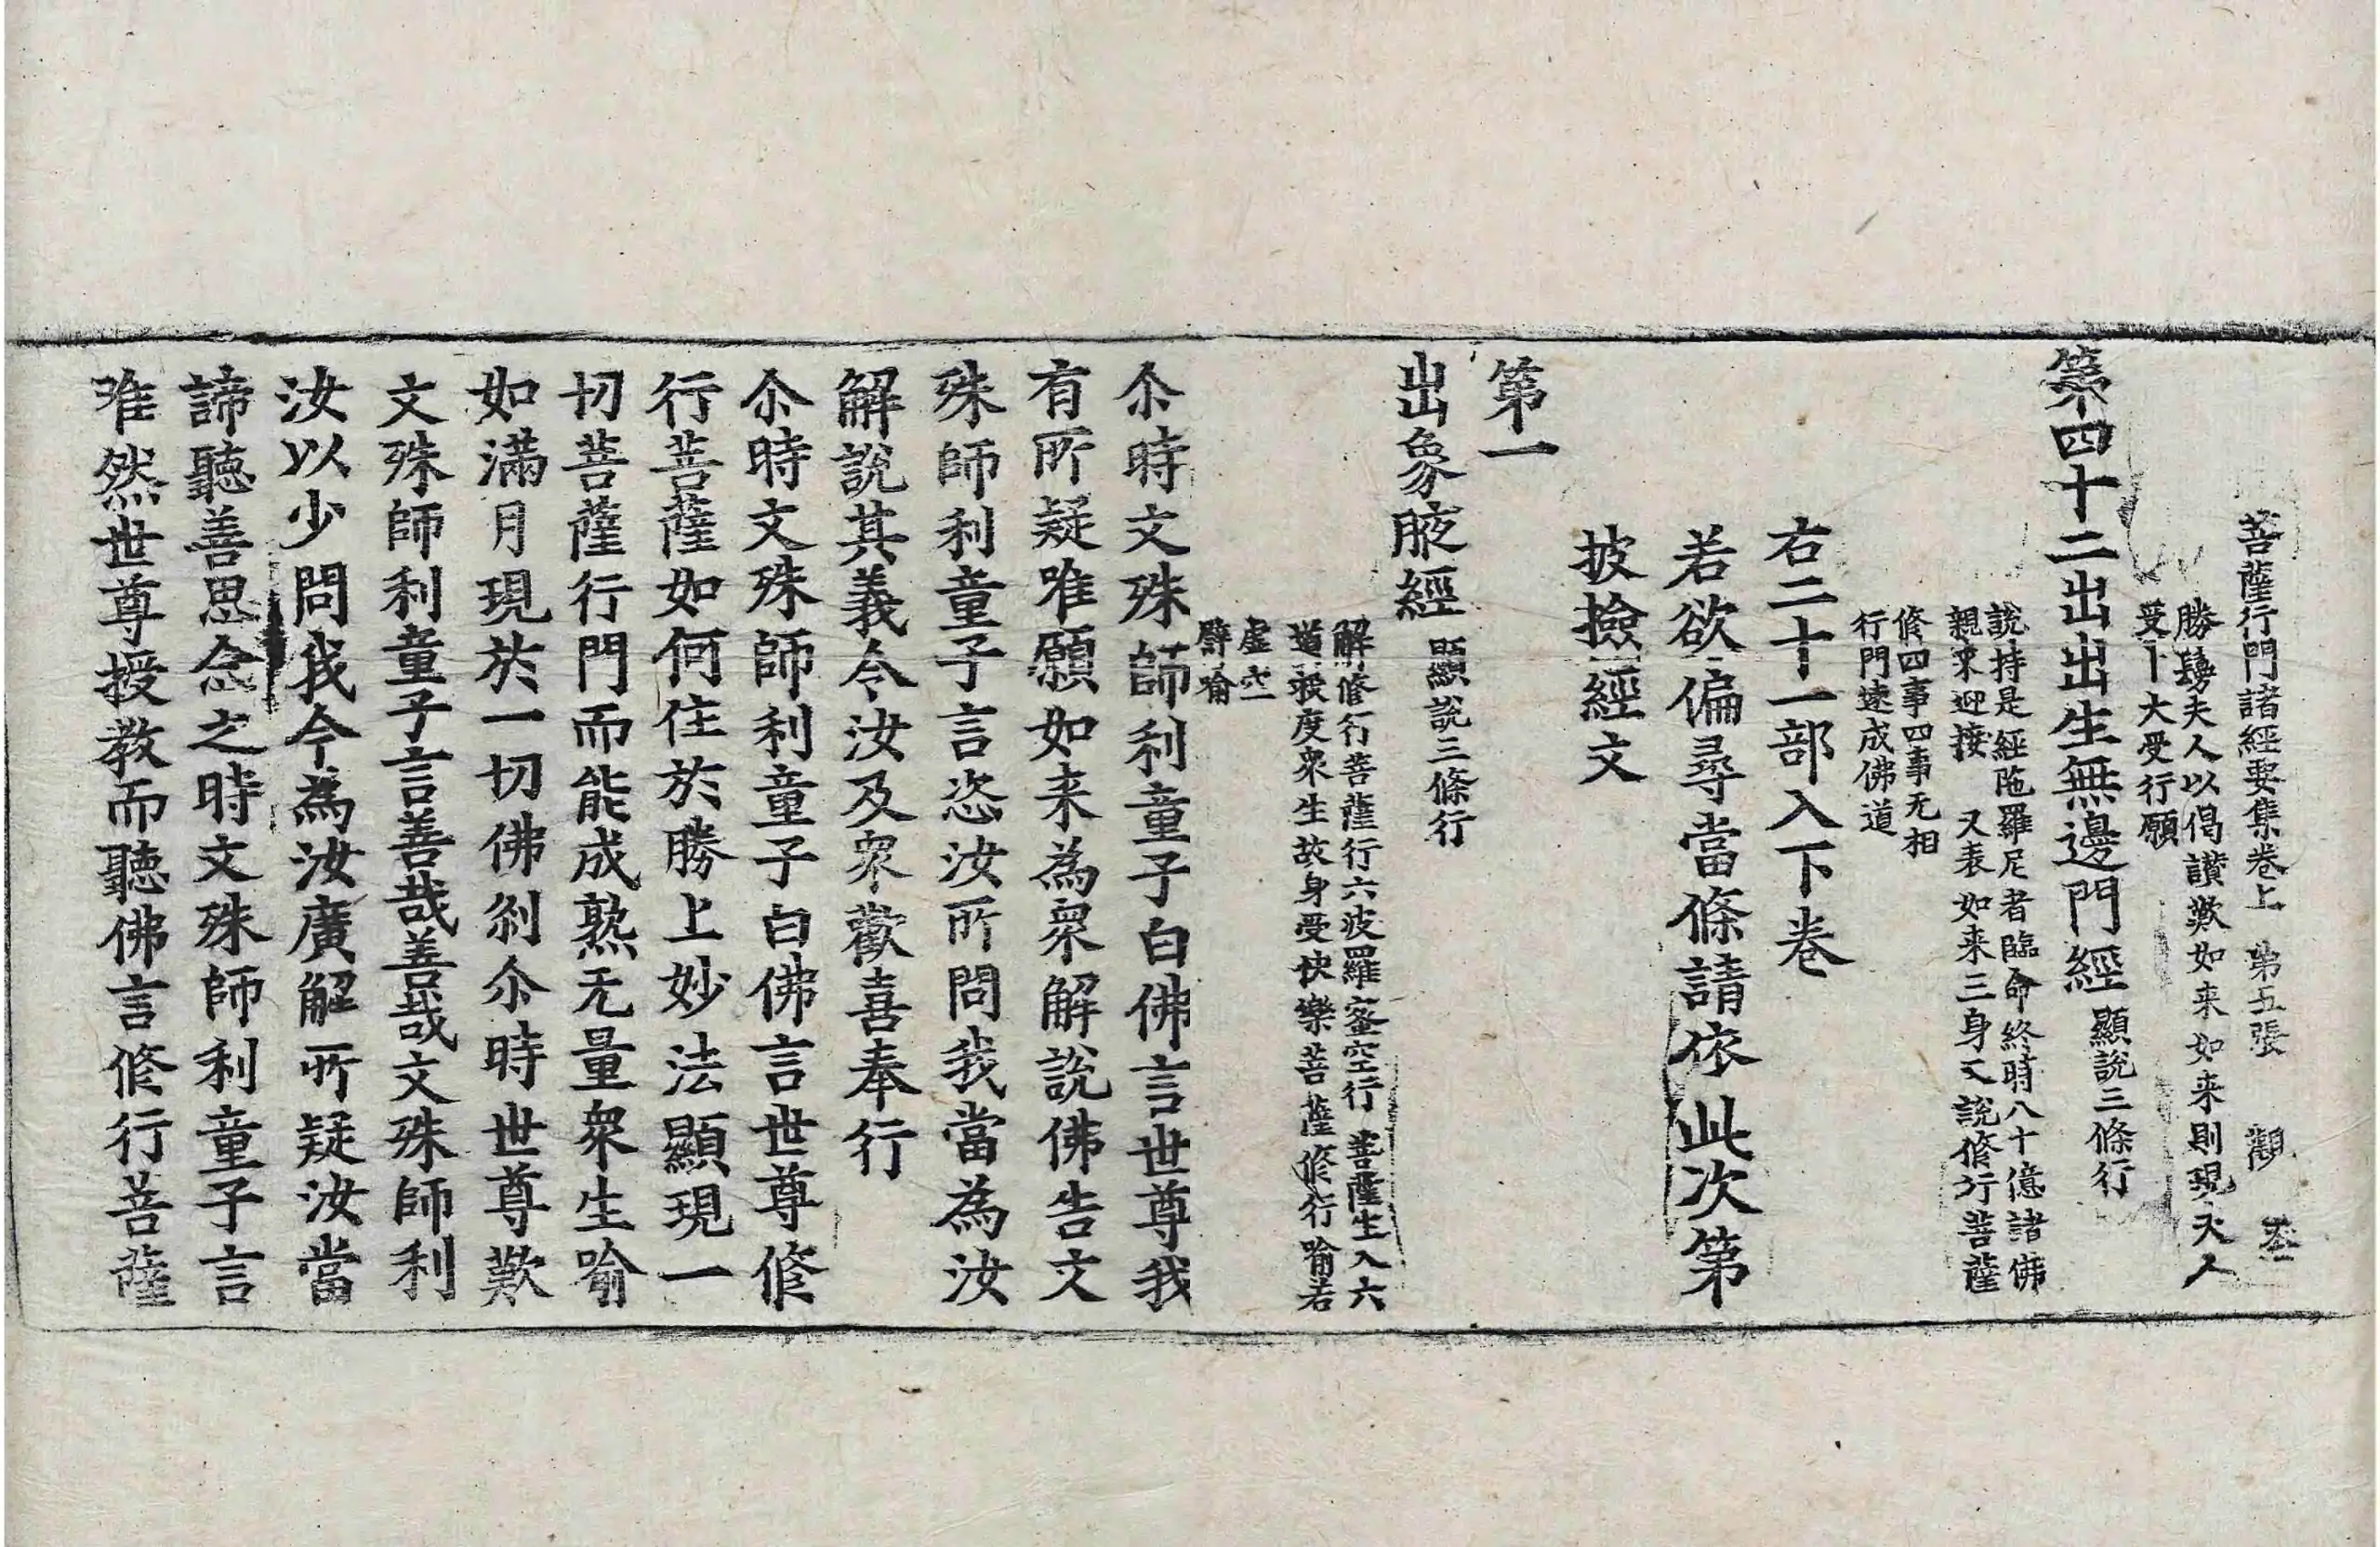 菩薩行門諸經要集卷上 第五張 觀
勝鬘夫人以偈讃歎如来如来則現夫人
受十大受行願
第四十二出出生無邊門經 顯説三條行
説持是經陁羅尼者臨命終時八十億諸佛
親来迎接 又表如来三身又説修行菩薩
修四事四事无相
行門速成佛道
右二十一部入下卷
若欲徧尋當條請依此次第
披撿經文
第一
出象腋經 顯説三條行
解修行菩薩行六波羅蜜空行 菩薩生入六
道救度衆生故身受快樂菩薩修行喻若
虚空
譬喻
尒時文殊師利童子白佛言世尊我
有所疑唯願如来為衆解説佛告文
殊師利童子言恣汝所問我當為汝
解説其義令汝及衆歡喜奉行
尒時文殊師利童子白佛言世尊修
行菩薩如何住於勝上妙法顯現一
切菩薩行門而能成熟无量衆生喻
如滿月現於一切佛刹尒時世尊歎
文殊師利童子言善哉善哉文殊師利
汝以少問我今為汝廣解所疑汝當
諦聽善思念之時文殊師利童子言
唯然世尊授教而聽佛言修行菩薩